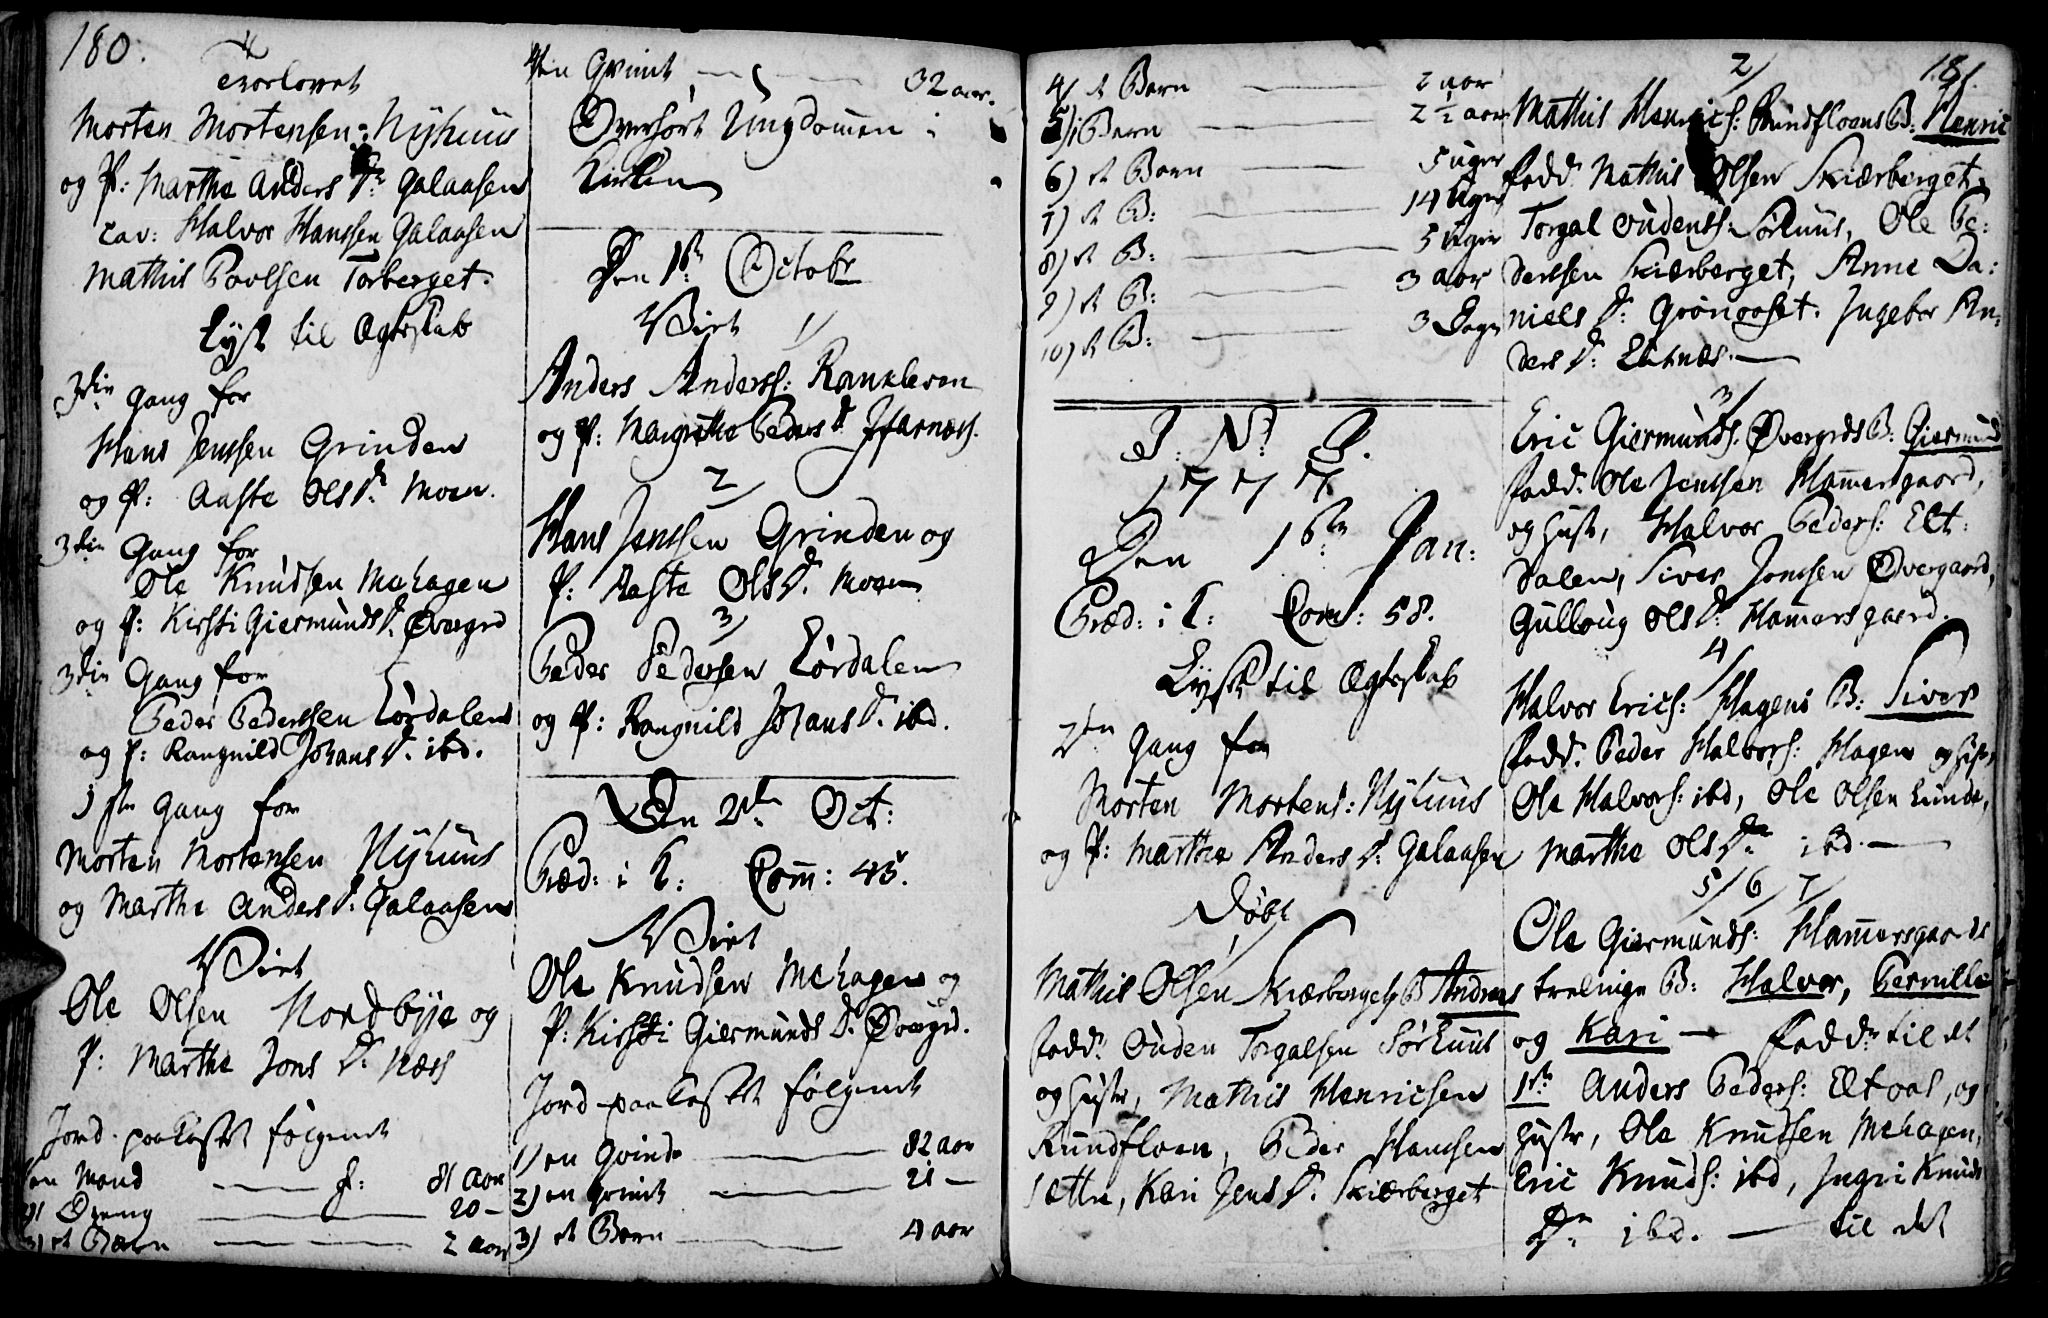 180.
4
Trorlovet
Morten Mortensen Nÿhuus
og P: Marthe Anders D: Galaasen
Cav: Halvor Hanssen Galaasen
Mathis Povlsen Torberget.
Lyst til Ægteskab
3die Gang for
Hans Jenssen Grinden
og P: Aaste Ols Dr Moen.
3die Gang for
Ole Knudsen Mehagen
og P: Kirsti Giermunds D: Øvergrd
3die Gang for
Peder Pederssen Lørdalen
og P: Rangnild Johans D. ibd.
1ste Gang for
Morten Mortensen Nÿhuus
og Marthe Anders D: Galaasen
Viet
Ole Olsen Nordbÿe og
P: Marthe Jons D: Næss
Jord-paakastet følgende
en Mand P: 81 aar
2) Dreng 20 –
3) et Barn 2 aar
4) en Qvinde 32 aar.
Overhørt Ungdommen i
Kirken
Den 1ste Octobr
Viet
1/
Anders Anderss: Rankleven
og P: Margrethe Peders D:
2/
Hans Jenssen Grinden og
P: Aaste Ols D. Moen
3/
Peder Pedersen Lørdalen
og P: Rangnild Johans D. ibd.
Den 2den Oct:
Præd: i T: Comm: 43.
Viet
Ole Knudsen Mehagen og
P: Kirsti Giermunds D. Øvergd.
Jord-paakastet følgende
1) en Qvinde 82 aar
2) en Qvinde 21 –
3) et Barn 4 aar
4) et Barn 2 aar
5) Barn 2 ½ aar
6) et Barn 5 uger
7) et B: 14 Uger
8) et B: 5 Uger
9) et B: 3 aar
10) et B: 3 Dage
J. N. J.
1777
Den 1ste Jan:
Præd: i T: Com: 58.
Lyst til Ægteskab
2den Gang for
Morten Mortens: Nÿhuus
og P: Marthe Anders D: Galaasen
Døbt
1/
Mathis Olsen Skiærbergets B Andreas
fadd: Ouden Torgalsen Sørhuus
og Hustr, Mathis Henrichsen
Rundfloen, Peder Hansen
Sætre, Kari Jens D. Skiærberget
181.
2/
Mathis Henrichs: Rundfloens B: Henric
fadd. Mathis Olsen Skiærberget,
Torgal Oudenss: Sørhuus, Ole Pe:
derssen Skiærberget, Anne Da:
niels D: Grønoset. Ingebor An:
ders D: Lutnæs.
3/
Eric Giermunds: Øvergrds B: Giermund
fadd: Ole Jenssen Hammersgaard,
og Hustr, Halvor Peders: Elt:
dalen, Siver Jonssen Øvergaard,
Gulloug Ols D: Hammersgaard.
4/
Halvor Erics: Hagens B: Siver
fadd. Peder Halvors: Hagen og Hustr,
Ole Halvors: ibd, Ole Olsen Lunde,
Marthe Ols Dr ibd.
5/ 6/ 7/
Ole Giermunds: Hammersgaards
trelinge B: Halvor, Pernille
og Kari – fadd: til det
1ste Anders Peders: Eltval, og
Hustr, Ole Knudsen Mehagen,
Eric Knuds: ibd, Ingri Knuds
Dr ibd. – til det